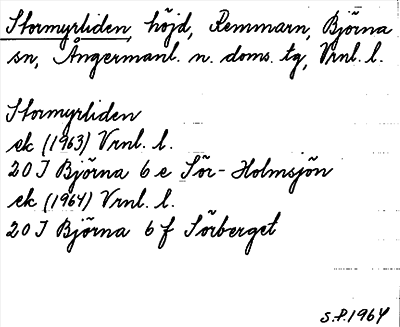 Stormyrliden, höjd, Remmarn, Björna
sn, Ångermanl. n. doms. tg, Vrnl. l.
Stormyrliden
ek (1963) Vrnl. l.
20 I Björna 6 e Sör-Holmsjön
ek (1964) Vrnl. l.
20 I Björna 6 f Sörberget
S.P. 1964